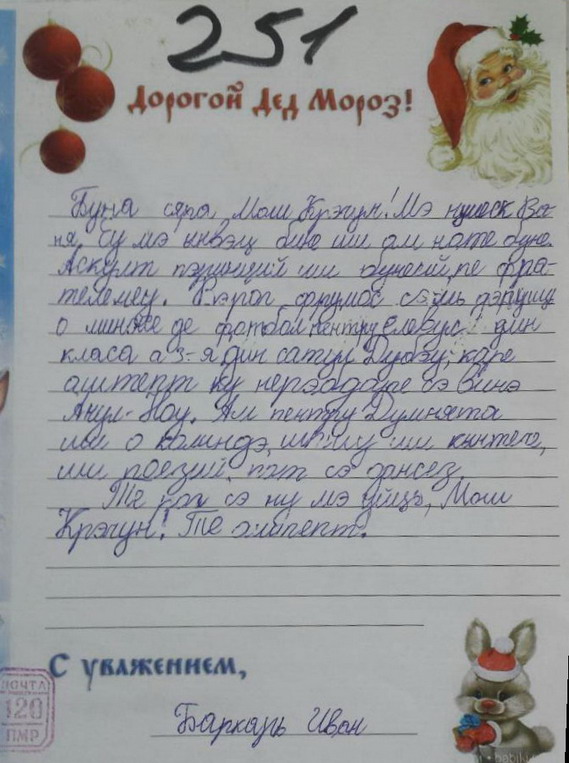 251
Дорогой Дед Мороз!
Буна сяра Мош Крэчун! Мэ нумеск Ва-
ня. Еу мэ ынвэц бине ши ам ноте буне.
Аскулт пэринций ши бунеий, пе фра-
телемеу. Те рог фрумос сэ-мь дэруешь
о минӂе де фотбал пентру елевул дин
класа а 3-я дин сатул Дубэу, каре
аштепт ку нерэбдаре сэ винэ
Анул-Ноу. Ам пентру Думнята
ши о колиндэ, ши кынтече,
ши поезий, пот сэ дансез.
Те рог сэ ну мэ уйць, Мош
Крэчун! Те аштепт.
С уважением,
Баркарь Иван
ПОЧТА
120
ПМР